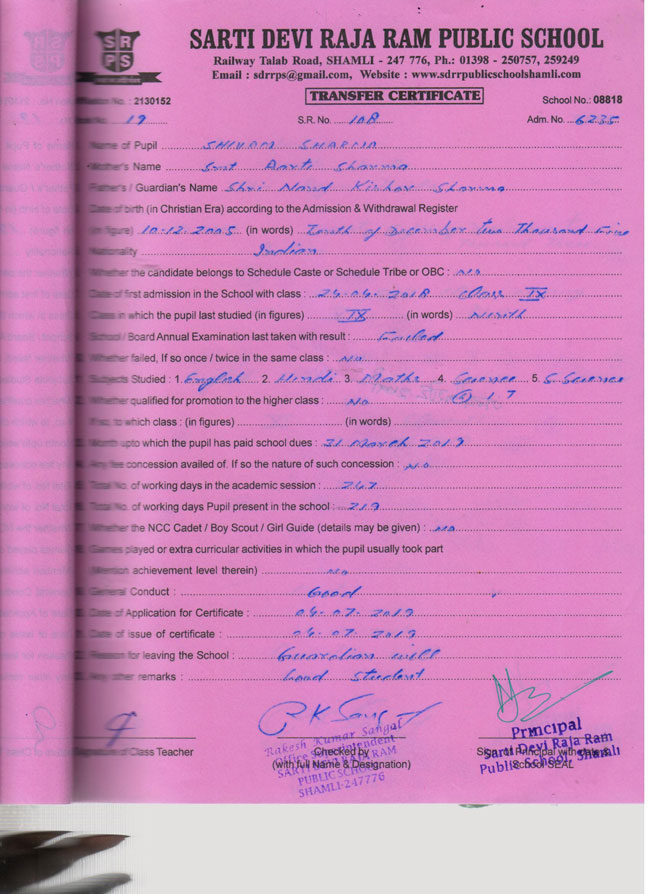 SRPS
SARTI DEVI RAJA RAM PUBLIC SCHOOL
Railway Talab Road, SHAMLI - 247 776, Ph.: 01398 - 250757, 259249
Email : sdrrps@gmail.com, Website : www.sdrrpublicschoolshamli.com
TRANSFER CERTIFICATE
No. : 2130152 School No.: 08818
No. 19 S.R. No. 108 Adm. No. 6235
Name of Pupil SHIVAM SHARMA
Mother's Name Smt Aarti Sharma
Father's / Guardian's Name Shri Nand Kishor Sharma
Date of birth (in Christian Era) according to the Admission & Withdrawal Register
(in figure) 10-12-2005 (in words) Tenth of December Two Thousand Five
Nationality Indian
Whether the candidate belongs to Schedule Caste or Schedule Tribe or OBC : No
Date of first admission in the School with class : 24-04-2018 Class IX
Class in which the pupil last studied (in figures) IX (in words) Ninth
School / Board Annual Examination last taken with result : Failed
Whether failed, If so once / twice in the same class : No
Subjects Studied : 1. English 2. Hindi 3. Maths 4. Science 5. S. Science
Whether qualified for promotion to the higher class : No 6 I.T
If so, to which class : (in figures) (in words)
Month upto which the pupil has paid school dues : 31 March 2019
Any fee concession availed of. If so the nature of such concession : No
Total No. of working days in the academic session : 247
Total No. of working days Pupil present in the school : 219
Whether the NCC Cadet / Boy Scout / Girl Guide (details may be given) : No
Games played or extra curricular activities in which the pupil usually took part
(Mention achievement level therein) No
General Conduct : Good
Date of Application for Certificate : 04-07-2019
Date of issue of certificate : 04-07-2019
Reason for leaving the School : Guardian will
Any other remarks : Good Student
Rakesh Kumar Sangal
Office Superintendent
SARTI DEVI RAJA RAM
PUBLIC SCHOOL
SHAMLI-247776
Principal
Sarti Devi Raja Ram
Public School, Shamli
Signature of Class Teacher Checked by Sign. of Principal with date &
(with full Name & Designation) School SEAL